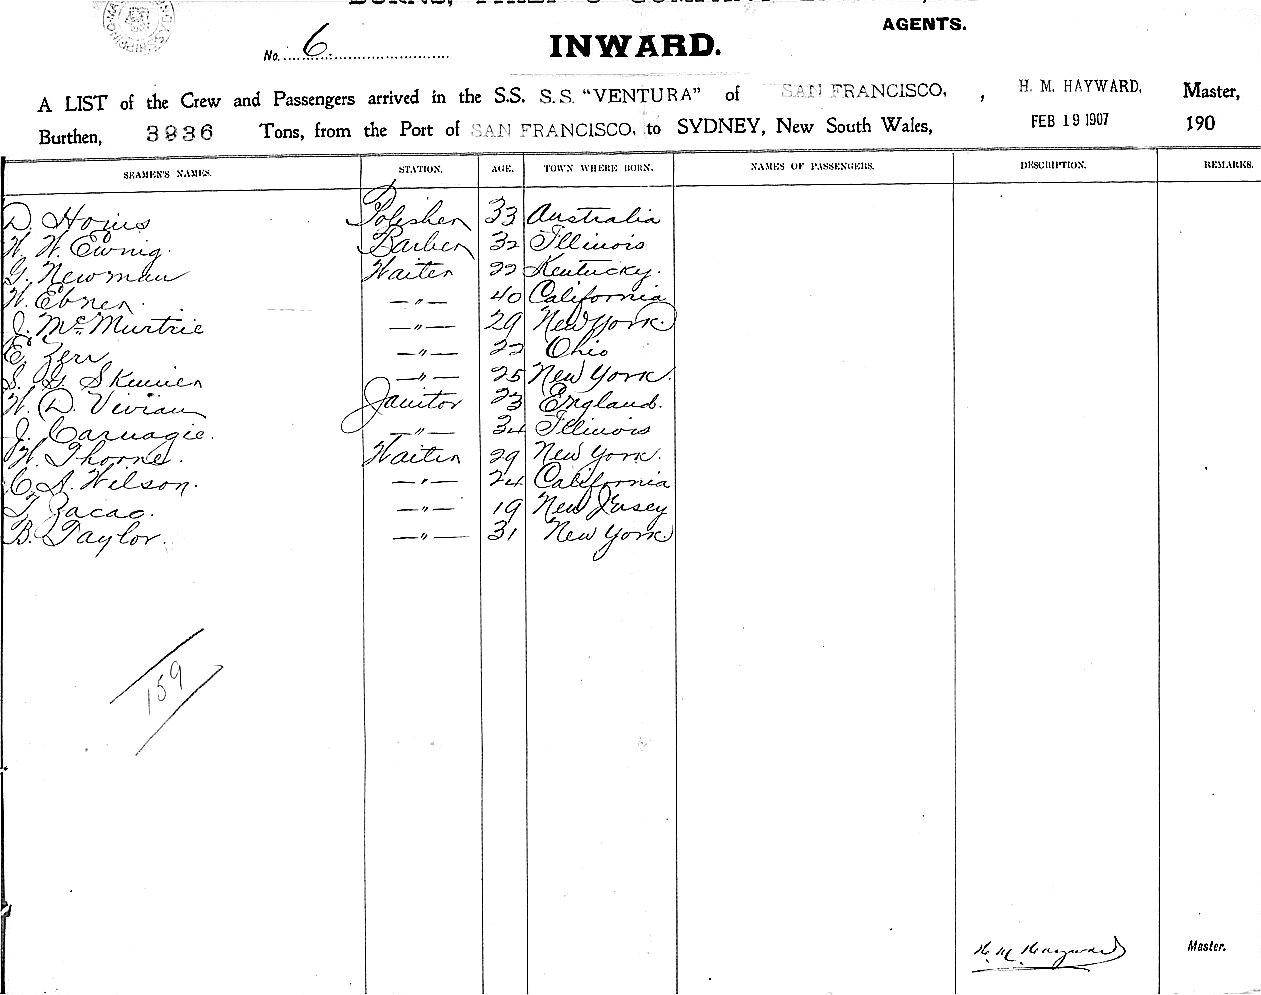 AGENTS.
No. 6
INWARD.
A LIST of the Crew and Passengers arrived in the S.S. S.S. "VENTURA" of SAN FRANCISCO, , H. M. HAYWARD, Master,
Burthen, 3936 Tons, from the Port of SAN FRANCISCO, to SYDNEY, New South Wales, FEB 19 1907 190
SEAMEN'S NAMES. STATION. AGE. TOWN WHERE BORN. NAMES OF PASSENGERS. DESCRIPTION. REMARKS.
D. Polisher 33 Australia
W. W. Ewnig. Barber 32 Illinois
G. Newman Waiter 22 Kentucky.
W. Ebner. —"— 40 California
J. McMurtrie —"— 29 New York.
E. Zerr —"— 22 Ohio
S. G. Skinner —"— 25 New York.
W. D. Vivian Janitor 23 England.
J. Carnagie. —"— 34 Illinois
W. Thorne. Waiter 29 New York.
C. A. Wilson. —"— 24 California
T. Zacao. —"— 19 New Jersey
B. Taylor. —"— 31 New York
159
H. M. Hayward Master.